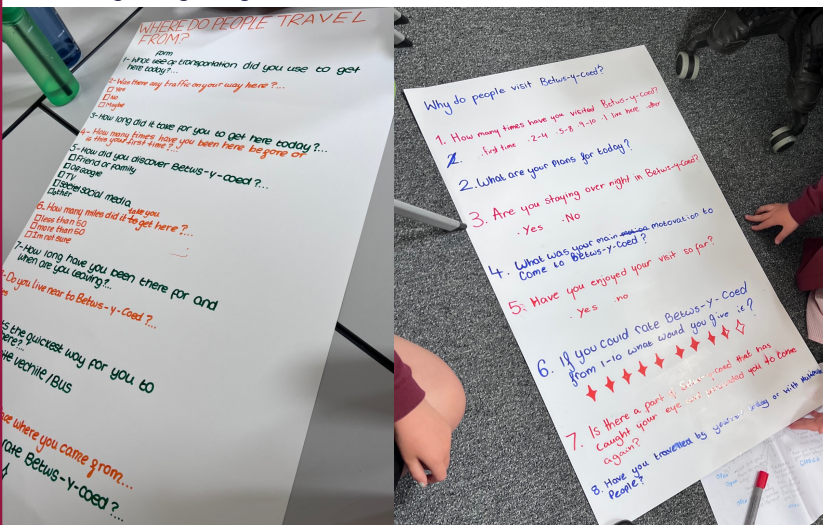 WHERE DO PEOPLE TRAVEL
FROM?
form
1- What use of transportation did you use to get
here today?...
2- Was there any traffic on your way here?...
Yes
No
Maybe
3- How long did it take for you to get here today?...
4- How many times have you been here before or
is this your first time?
5- How did you discover Betws-y-coed?...
Friend or family
Google
TV
social media
other
6. How many miles did it take you
to get here?...
less than 60
more than 60
Im not sure
7- How long have you been there for and
when are you leaving?...
-Do you live near to Betws-y-Coed?...
the quickest way for you to
here?...
vechile/Bus
where you came from...
rate Betws-y-Coed?...
Why do people visit Betws-y-Coed?
1. How many times have you visited Betws-y-Coed?
.first time .2-4 .5-8 .9-10 .I live here .other
2. What are your plans for today?
3. Are you staying over night in Betws-y-Coed?
.Yes .No
4. What was your main motovation to
come to Betws-y-Coed?
5. Have you enjoyed your visit so far?
.yes .no
6. If you could rate Betws-y-Coed
from 1-10 what would you give it?
7. Is there a part of that has
caught your eye you to come
again?
8. Have you travelled by or with
People?